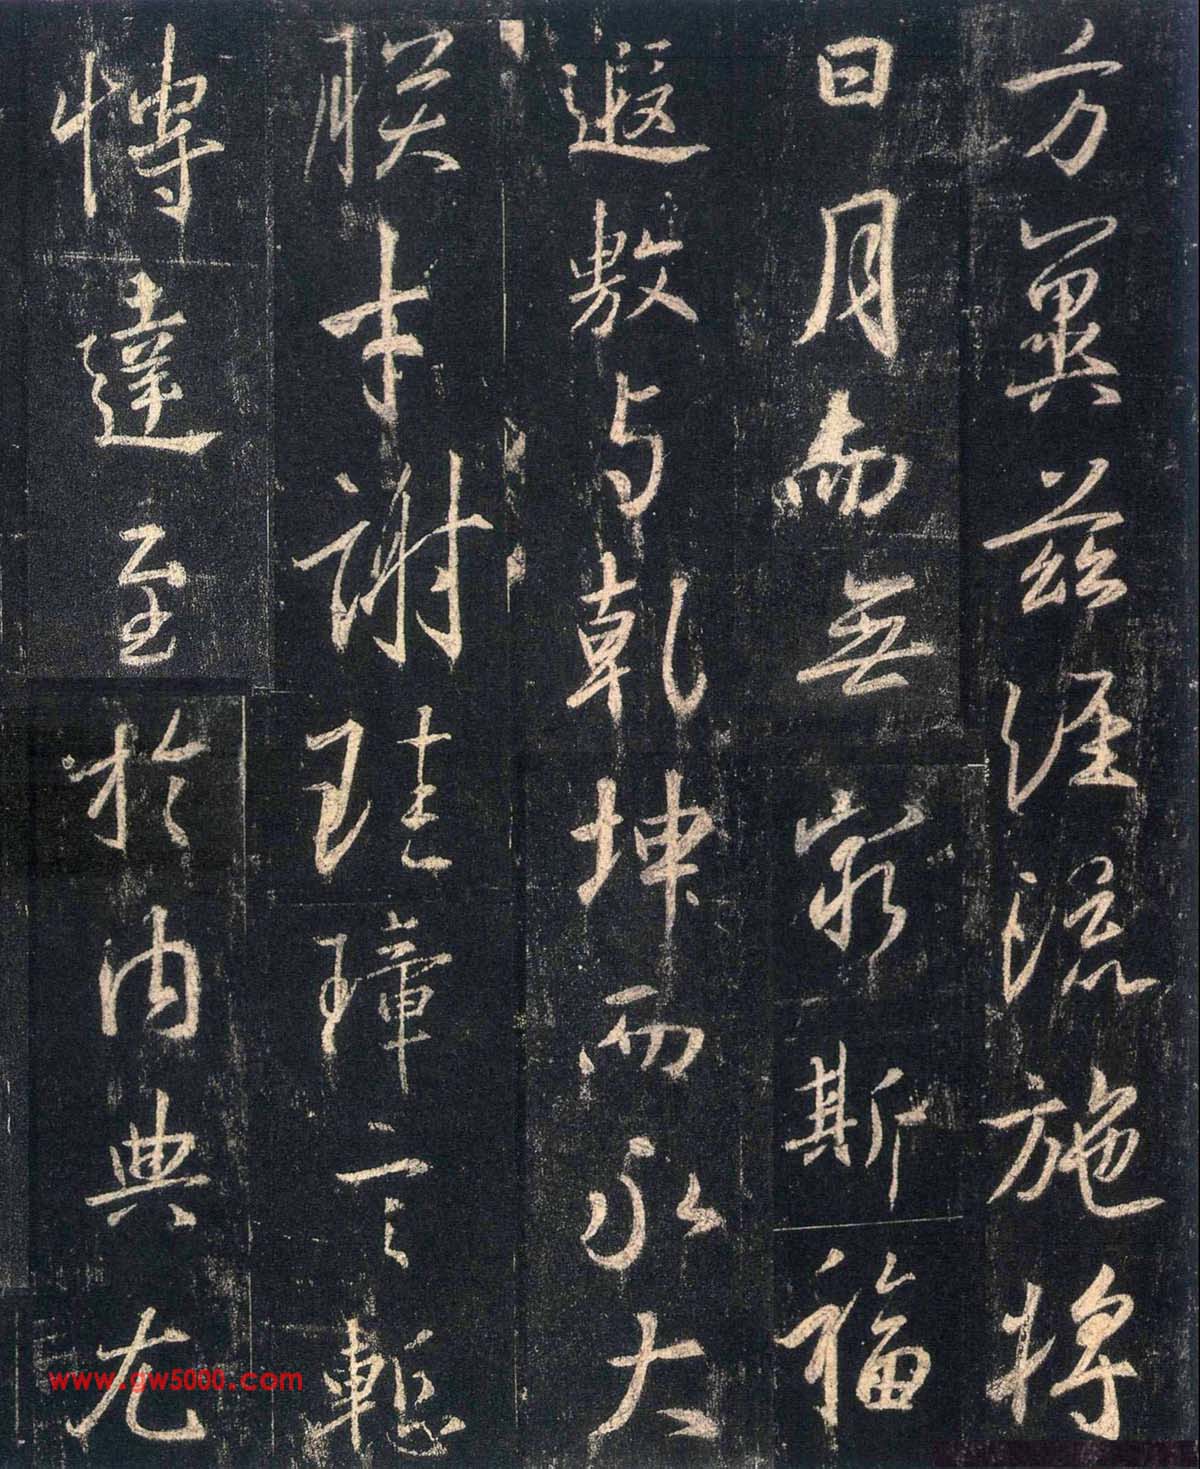 方冀茲經流施將
日月而無窮斯福
遐敷与乾坤而永大
朕才謝珪璋言慙
博達至於內典尤
www.gw5000.com